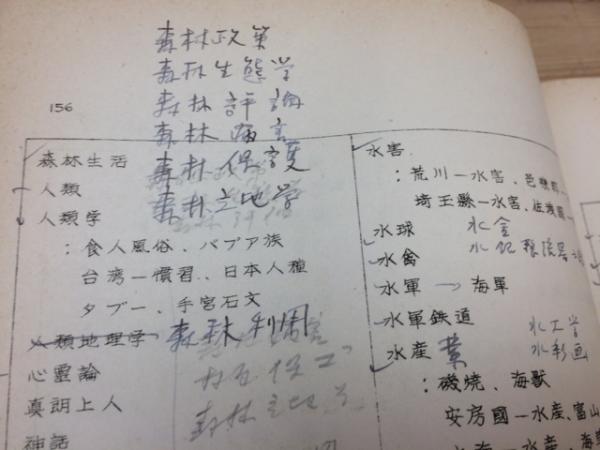 森林政策
森林生態学
森林評論
森林病害
森林保護
森林立地学
156
森林生活
人類
人類学
：食人風俗、パプア族
台湾一慣習、日本人種
タブー、手宮石文
人類地理学 森林利用
心霊論
真朗上人
神話
水害
：荒川一水害、
埼玉縣一水害、佐
水球 水金
水禽
水軍 → 海軍
水軍鉄道 水工学
水産業 水彩画
：磯焼、海獣
安房國一水産、富山